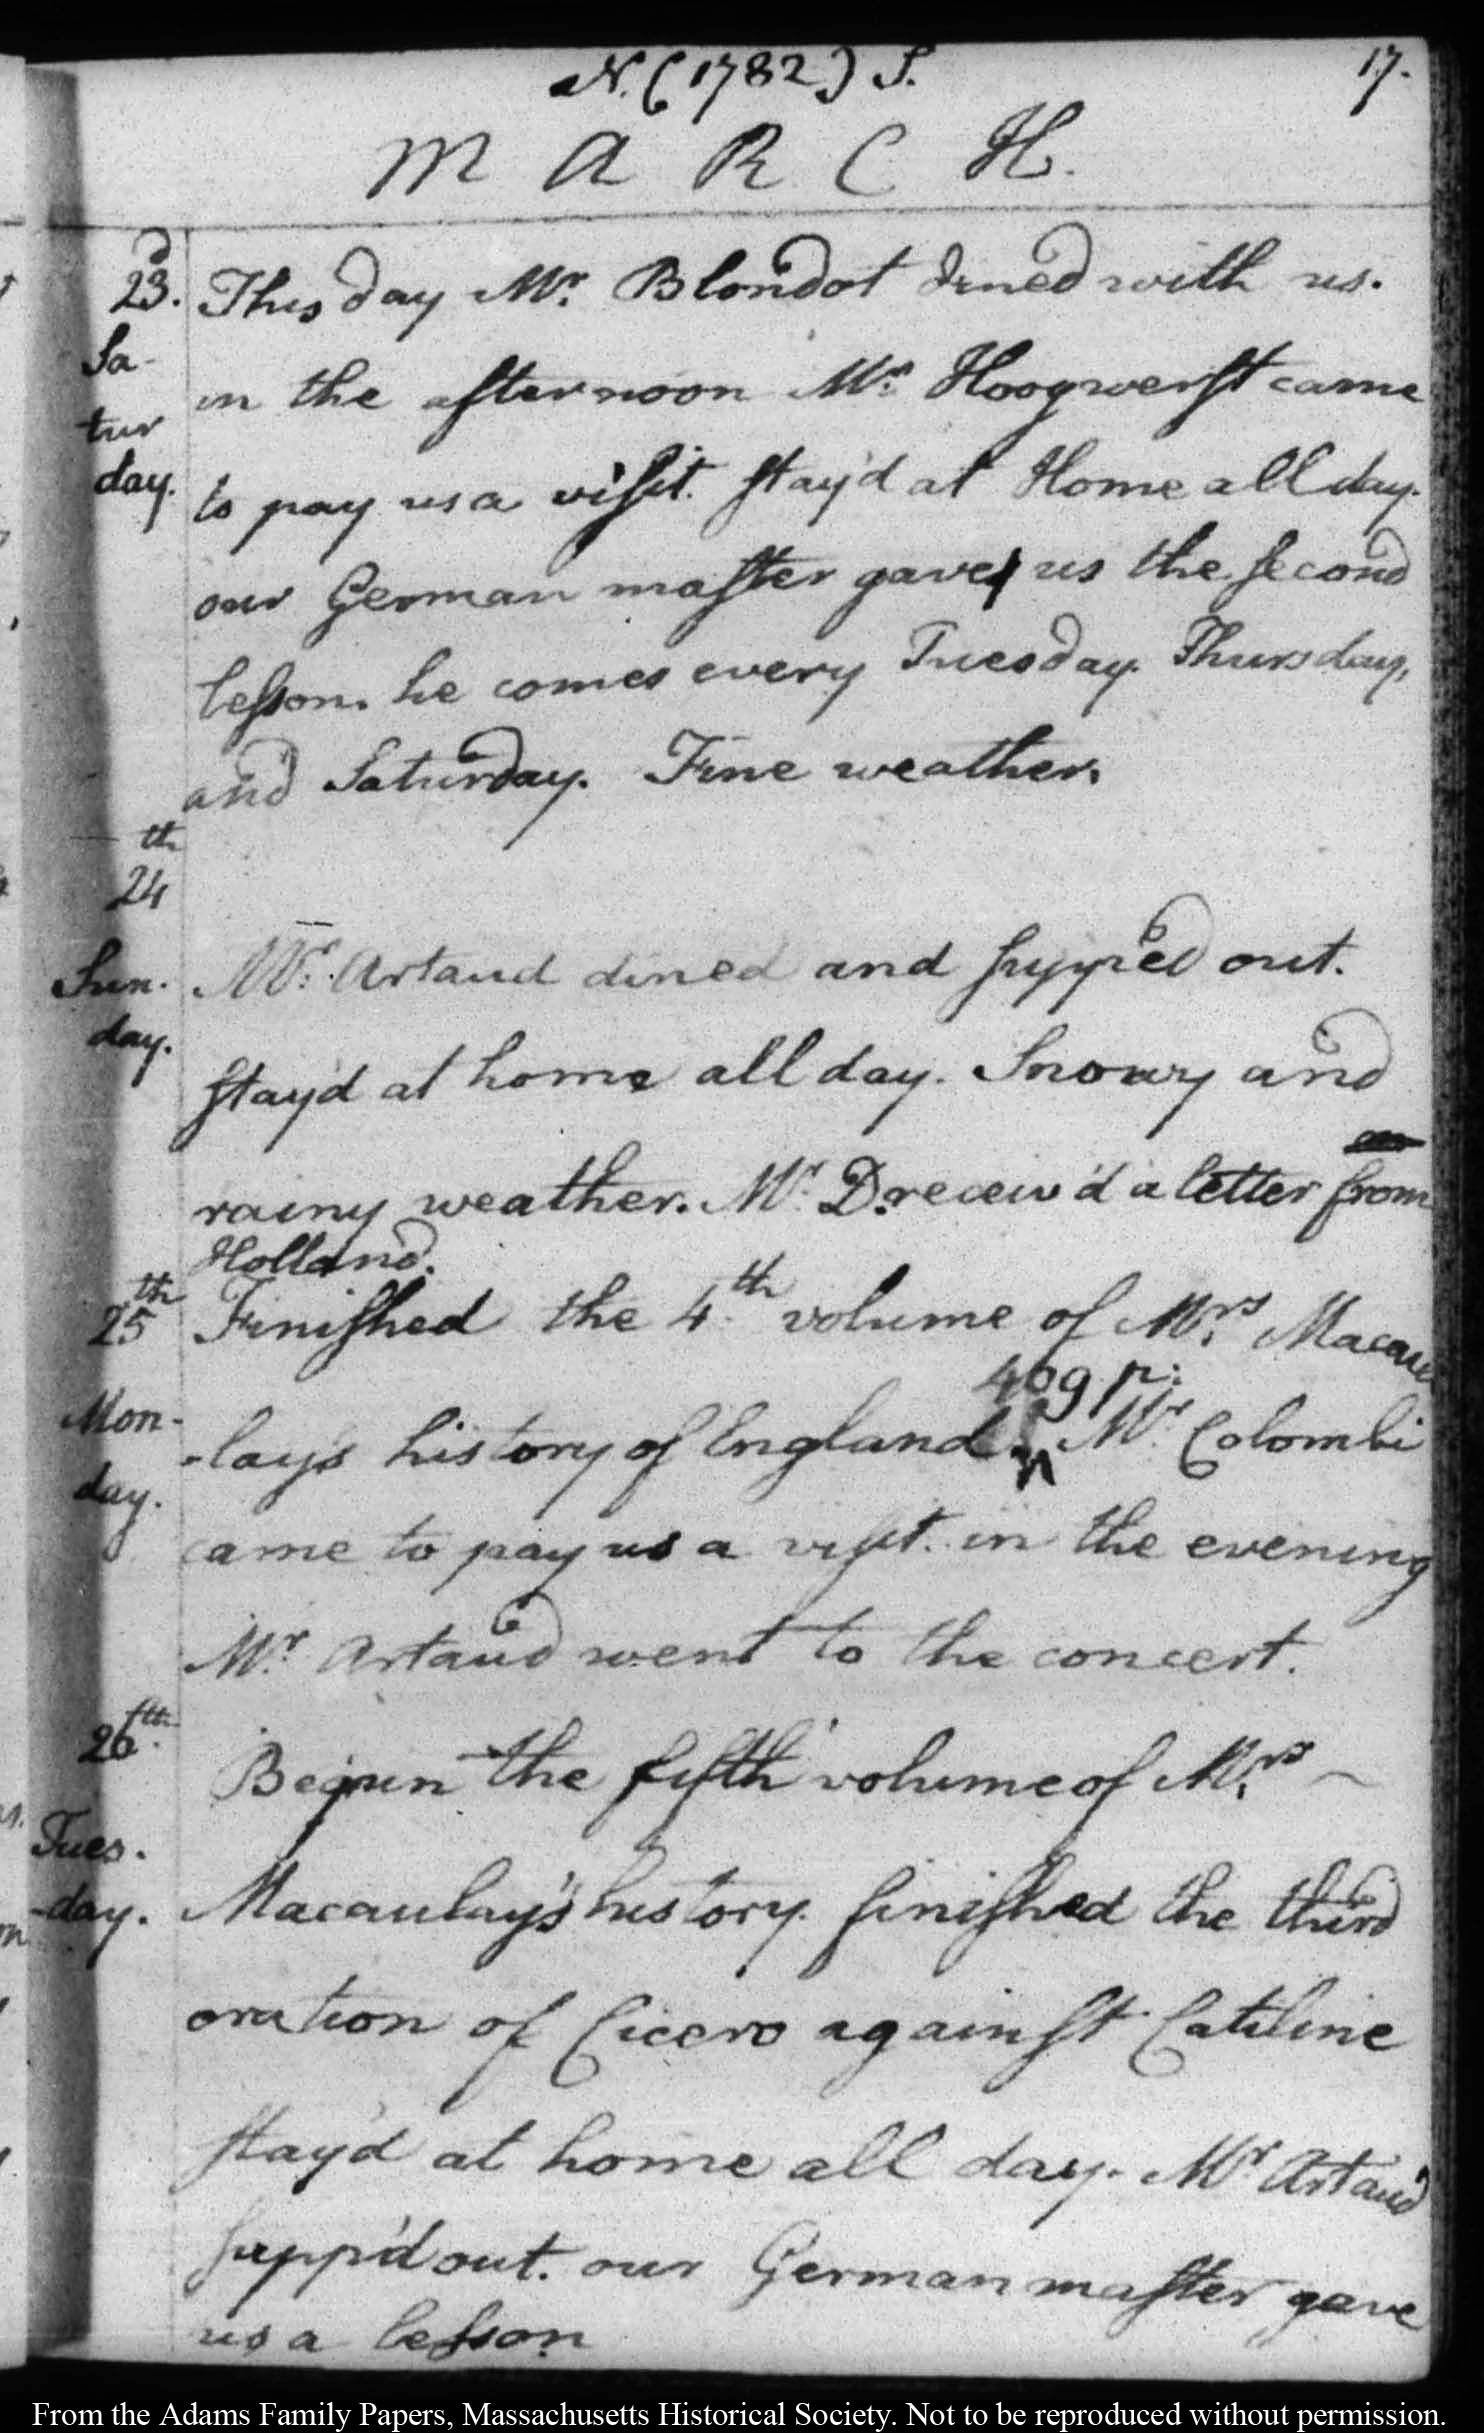 N. (1782) S.
17.
MARCH.
23.d Sa-turday. This day Mr. Blondot dined with us.
in the afternoon Mr. Hoogwerft came
to pay us a visit. stay'd at Home all day.
our German master gave us the second
lesson. he comes every Tuesday. Thursday,
and Saturday. Fine weather.
24th
Sun. Mr. Artaud dined and supp'ed out.
day.
stay'd at home all day. Snowy and
rainy weather. Mr. D. receiv'd a letter from
Holland.
25th Finished the 4th volume of Mrs. Macau
409 p:
Mon-
-lay's history of England. Mr. Colombi
day.
came to pay us a visit. in the evening
Mr. Artaud went to the concert.
26th.
Begun the fifth volume of Mrs.
Tues.
-day. Macaulay's history. finished the third
oration of Cicero against Catiline
stay'd at home all day. Mr Artaud
supp'd out. our German master gave
us a lesson
From the Adams Family Papers, Massachusetts Historical Society. Not to be reproduced without permission.